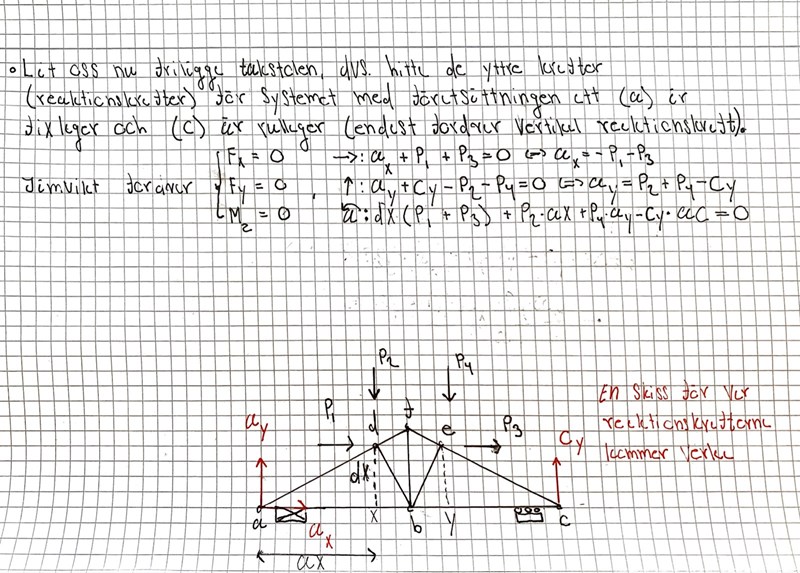 • Låt oss nu frilägga takstolen, dvs. hitta de yttre krafter
(reaktionskrafter) för systemet med förutsättningen att (a) är
fixlager och (c) är rullager (endast fordrar vertikal reaktionskraft).
Jämvikt fordrar
Fx = 0 →: ax + P1 + P3 = 0 ⇔ ax = -P1 - P3
Fy = 0 , ↑: ay + Cy - P2 - P4 = 0 ⇔ ay = P2 + P4 - Cy
Mz = 0 a: dX (P1 + P3) + P2·aX + P4·ay - Cy·aC = 0
P2 P4
En skiss för var
P1 d f e P3
reaktionskrafterna
kommer verka
ay Cy
dX
a ax X b y c
aX